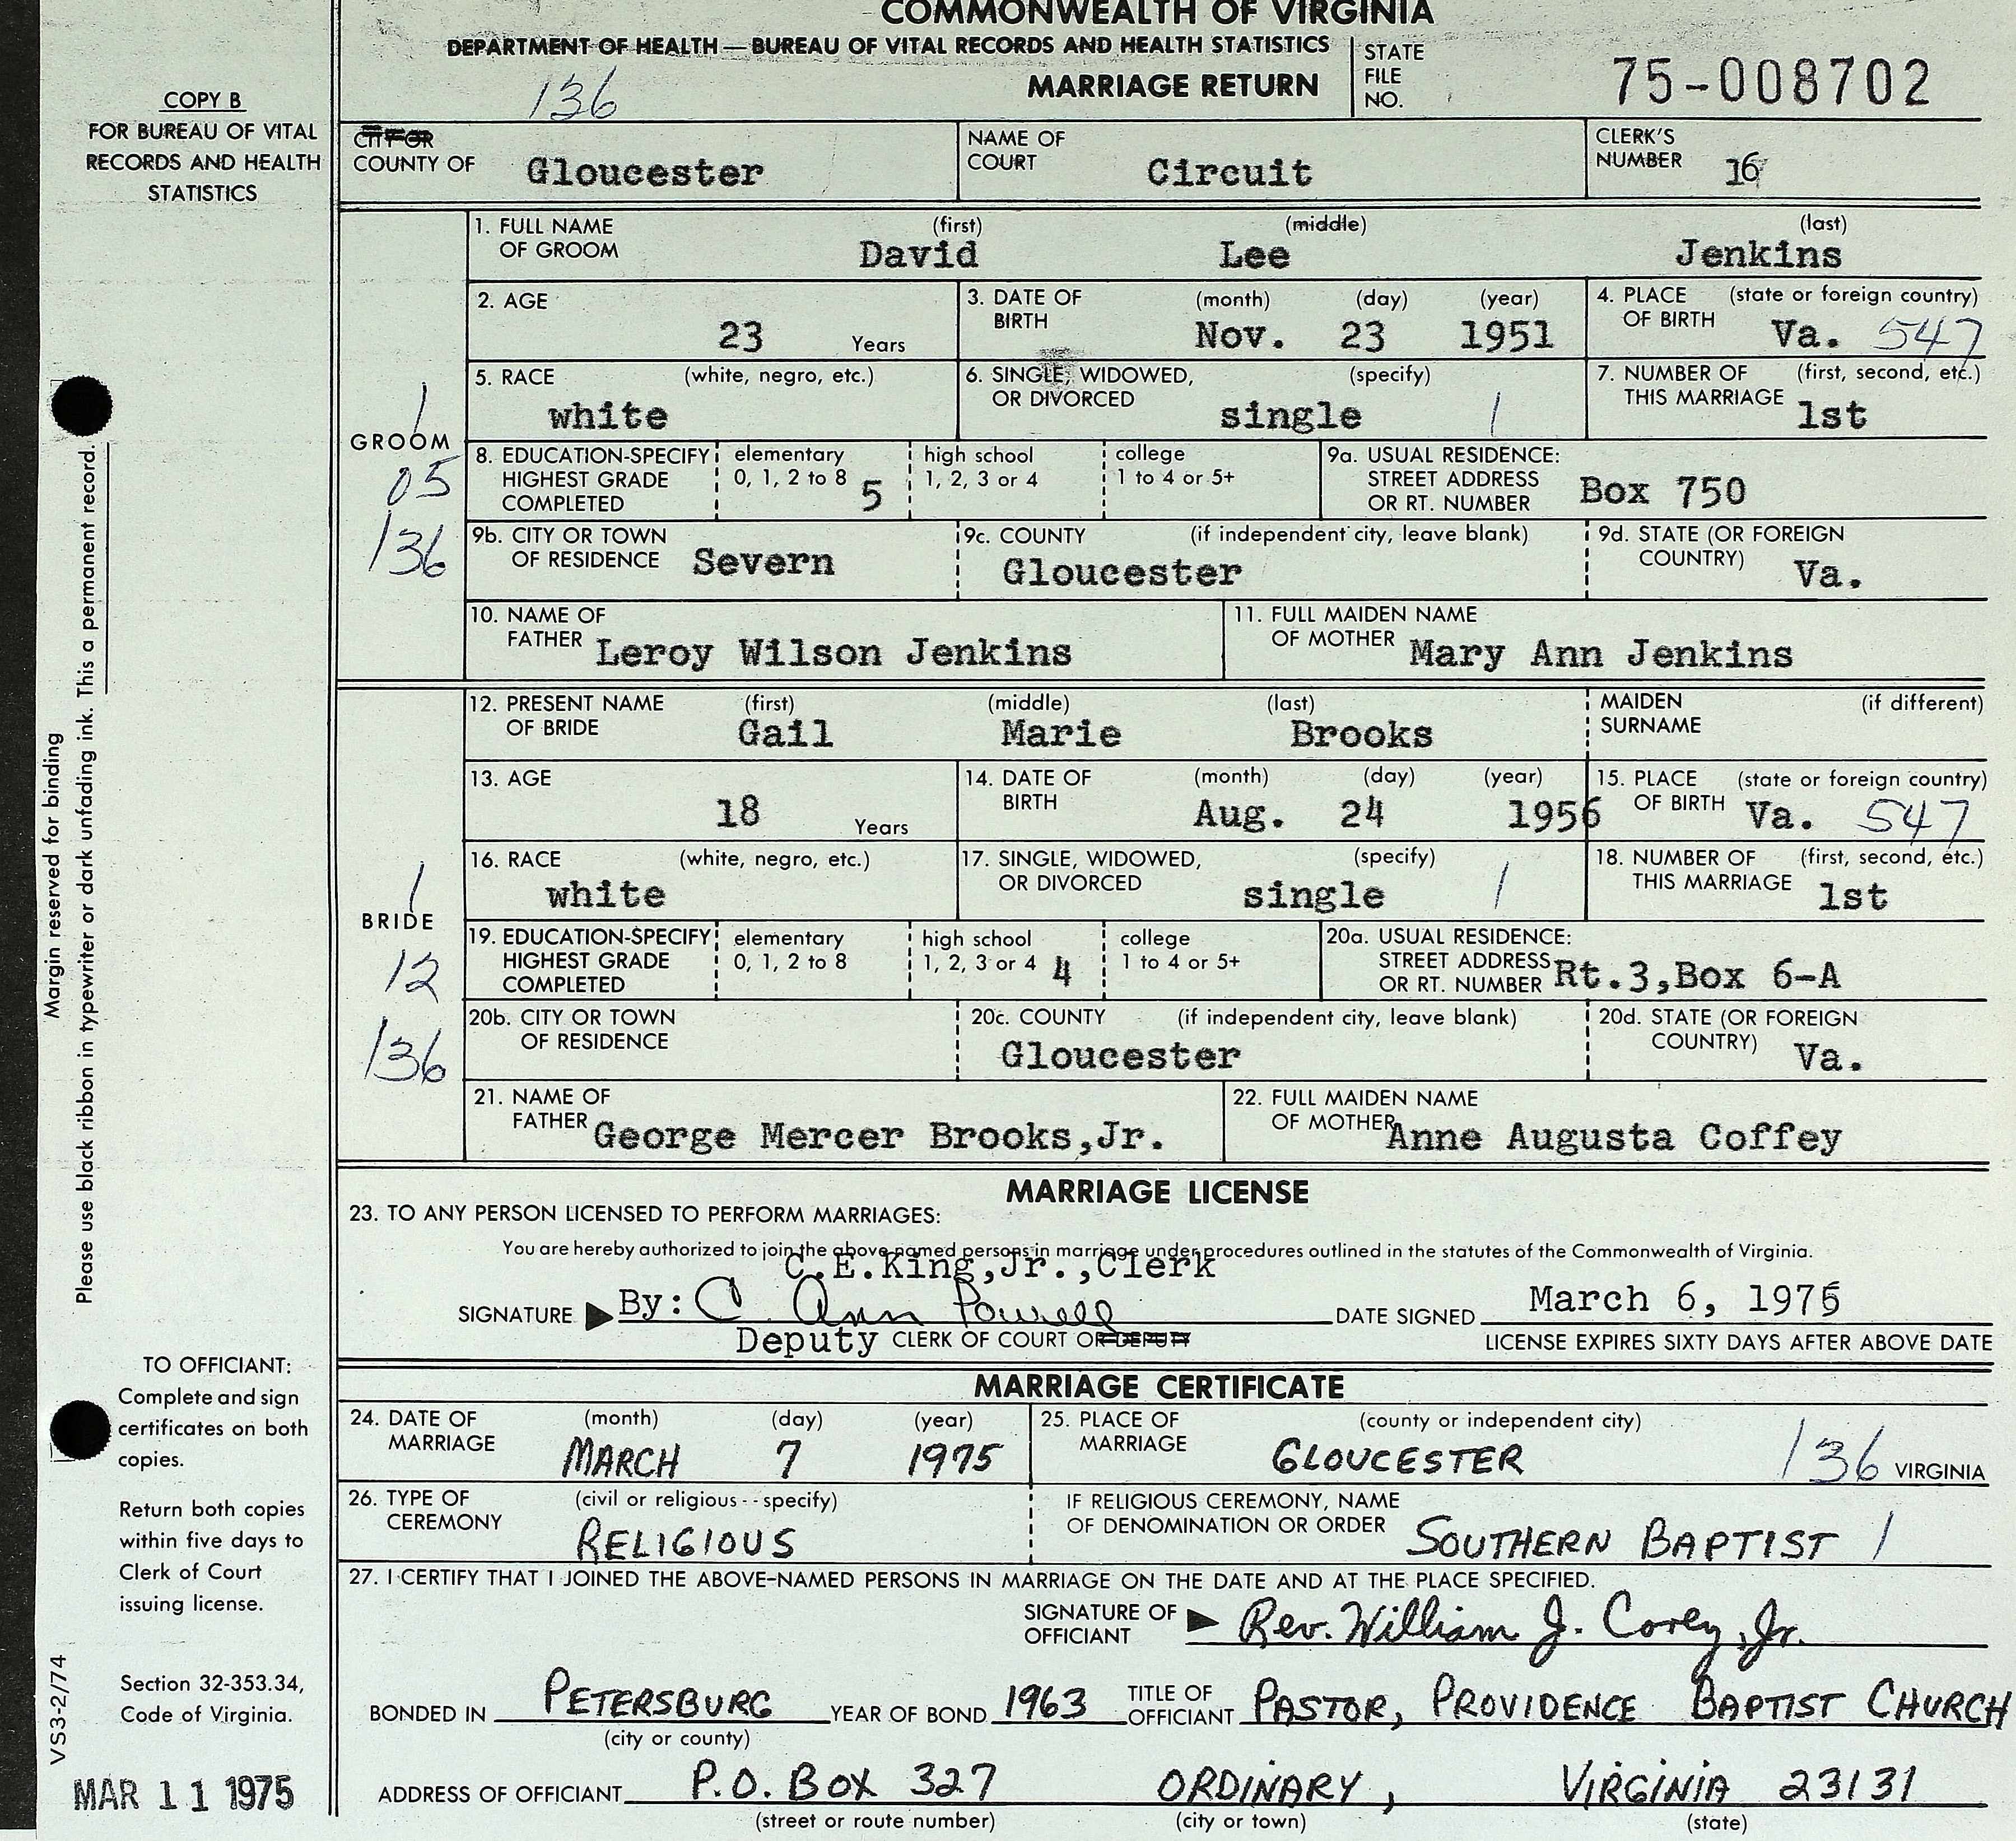 COMMONWEALTH OF VIRGINIA
DEPARTMENT OF HEALTH — BUREAU OF VITAL RECORDS AND HEALTH STATISTICS
136
MARRIAGE RETURN
STATE FILE NO. 75-008702
COPY B
FOR BUREAU OF VITAL
RECORDS AND HEALTH
STATISTICS
CITY OR
COUNTY OF Gloucester
NAME OF COURT Circuit
CLERK'S NUMBER 16
GROOM
1
05
136
1. FULL NAME OF GROOM (first) David (middle) Lee (last) Jenkins
2. AGE 23 Years
3. DATE OF BIRTH (month) Nov. (day) 23 (year) 1951
4. PLACE OF BIRTH (state or foreign country) Va. 547
5. RACE (white, negro, etc.) white
6. SINGLE, WIDOWED, OR DIVORCED (specify) single 1
7. NUMBER OF THIS MARRIAGE (first, second, etc.) 1st
8. EDUCATION-SPECIFY HIGHEST GRADE COMPLETED elementary 0, 1, 2 to 8 5 high school 1, 2, 3 or 4 college 1 to 4 or 5+
9a. USUAL RESIDENCE: STREET ADDRESS OR RT. NUMBER Box 750
9b. CITY OR TOWN OF RESIDENCE Severn
9c. COUNTY (if independent city, leave blank) Gloucester
9d. STATE (OR FOREIGN COUNTRY) Va.
10. NAME OF FATHER Leroy Wilson Jenkins
11. FULL MAIDEN NAME OF MOTHER Mary Ann Jenkins
BRIDE
1
12
136
12. PRESENT NAME OF BRIDE (first) Gail (middle) Marie (last) Brooks
MAIDEN SURNAME (if different)
13. AGE 18 Years
14. DATE OF BIRTH (month) Aug. (day) 24 (year) 1956
15. PLACE OF BIRTH (state or foreign country) Va. 547
16. RACE (white, negro, etc.) white
17. SINGLE, WIDOWED, OR DIVORCED (specify) single 1
18. NUMBER OF THIS MARRIAGE (first, second, etc.) 1st
19. EDUCATION-SPECIFY HIGHEST GRADE COMPLETED elementary 0, 1, 2 to 8 high school 1, 2, 3 or 4 4 college 1 to 4 or 5+
20a. USUAL RESIDENCE: STREET ADDRESS OR RT. NUMBER Rt.3,Box 6-A
20b. CITY OR TOWN OF RESIDENCE
20c. COUNTY (if independent city, leave blank) Gloucester
20d. STATE (OR FOREIGN COUNTRY) Va.
21. NAME OF FATHER George Mercer Brooks,Jr.
22. FULL MAIDEN NAME OF MOTHER Anne Augusta Coffey
MARRIAGE LICENSE
23. TO ANY PERSON LICENSED TO PERFORM MARRIAGES:
You are hereby authorized to join the above-named persons in marriage under procedures outlined in the statutes of the Commonwealth of Virginia.
C.E.King,Jr.,Clerk
SIGNATURE By: C Ann Powell DATE SIGNED March 6, 1975
Deputy CLERK OF COURT OR DEPUTY LICENSE EXPIRES SIXTY DAYS AFTER ABOVE DATE
MARRIAGE CERTIFICATE
24. DATE OF MARRIAGE (month) MARCH (day) 7 (year) 1975
25. PLACE OF MARRIAGE (county or independent city) GLOUCESTER 136 VIRGINIA
26. TYPE OF CEREMONY (civil or religious - - specify) RELIGIOUS
IF RELIGIOUS CEREMONY, NAME OF DENOMINATION OR ORDER SOUTHERN BAPTIST 1
27. I CERTIFY THAT I JOINED THE ABOVE-NAMED PERSONS IN MARRIAGE ON THE DATE AND AT THE PLACE SPECIFIED.
SIGNATURE OF OFFICIANT Rev. William J. Corey, Jr.
BONDED IN PETERSBURG (city or county) YEAR OF BOND 1963 TITLE OF OFFICIANT PASTOR, PROVIDENCE BAPTIST CHURCH
ADDRESS OF OFFICIANT P.O. BOX 327 ORDINARY, VIRGINIA 23131
(street or route number) (city or town) (state)
Margin reserved for binding
Please use black ribbon in typewriter or dark unfading ink. This a permanent record.
TO OFFICIANT:
Complete and sign
certificates on both
copies.
Return both copies
within five days to
Clerk of Court
issuing license.
Section 32-353.34,
Code of Virginia.
VS3-2/74
MAR 11 1975